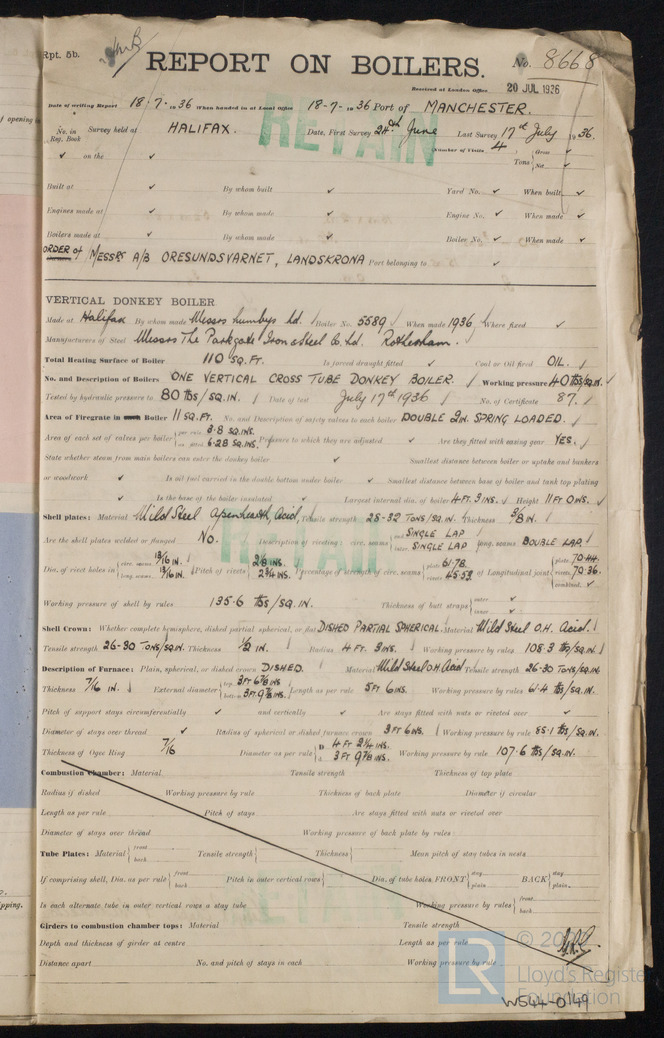 Rpt. 5b.
REPORT ON BOILERS.
No. 8668
Received at London Office 20 JUL 1936
Date of writing Report 18-7-1936 When handed in at Local Office 18-7-1936 Port of MANCHESTER.
No. in Reg. Book Survey held at HALIFAX. Date, First Survey 24th June Last Survey 17th July 1936.
(Number of Visits 4)
✓ on the ✓ Tons { Gross ✓ Net ✓
RETAIN
Built at ✓ By whom built ✓ Yard No. ✓ When built ✓
Engines made at ✓ By whom made ✓ Engine No. ✓ When made ✓
Boilers made at ✓ By whom made ✓ Boiler No. ✓ When made ✓
ORDER of MESSRS A/B ORESUNDSVARNET, LANDSKRONA Port belonging to ✓
VERTICAL DONKEY BOILER.
Made at Halifax By whom made Messrs Lumbys Ld. Boiler No. 5589 When made 1936 Where fixed ✓
Manufacturers of Steel Messrs The Parkgate Iron & Steel Co. Ld. Rotherham.
Total Heating Surface of Boiler 110 SQ. FT. Is forced draught fitted ✓ Coal or Oil fired OIL.
No. and Description of Boilers ONE VERTICAL CROSS TUBE DONKEY BOILER. Working pressure 40 lbs/SQ.IN.
Tested by hydraulic pressure to 80 lbs/SQ.IN. Date of test July 17th 1936 No. of Certificate 87.
Area of Firegrate in each Boiler 11 SQ. FT. No. and Description of safety valves to each boiler DOUBLE 2IN. SPRING LOADED.
Area of each set of valves per boiler { per rule 3.8 SQ.INS. as fitted 6.28 SQ.INS. Pressure to which they are adjusted ✓ Are they fitted with easing gear YES.
State whether steam from main boilers can enter the donkey boiler ✓ Smallest distance between boiler or uptake and bunkers
or woodwork ✓ Is oil fuel carried in the double bottom under boiler ✓ Smallest distance between base of boiler and tank top plating
✓ Is the base of the boiler insulated ✓ Largest internal dia. of boiler 4 FT. 3 INS. Height 11 FT 0 INS.
Shell plates: Material Mild Steel Open hearth, Acid, Tensile strength 28-32 TONS/SQ.IN. Thickness 3/8 IN.
Are the shell plates welded or flanged No. Description of riveting: circ. seams { end SINGLE LAP inter. SINGLE LAP long. seams DOUBLE LAP.
RETAIN
Dia. of rivet holes in { circ. seams 13/16 IN. long. seams 13/16 IN. Pitch of rivets { 2 1/8 INS. 2 3/4 INS. Percentage of strength of circ. seams { plate 61.78 rivets 45.59 of Longitudinal joint { plate 70.44. rivets 70.36. combined ✓
Working pressure of shell by rules 135.6 lbs/SQ.IN. Thickness of butt straps { outer ✓ inner ✓
Shell Crown: Whether complete hemisphere, dished partial spherical, or flat DISHED PARTIAL SPHERICAL. Material Mild Steel O.H. Acid.
Tensile strength 26-30 TONS/SQ.IN. Thickness 1/2 IN. Radius 4 FT. 3INS. Working pressure by rules 108.3 lbs/SQ.IN.
Description of Furnace: Plain, spherical, or dished crown DISHED. Material Mild Steel O.H. Acid Tensile strength 26-30 TONS/SQ.IN.
Thickness 7/16 IN. External diameter { top 3FT 6 7/8 INS bottom 3FT 9 7/8 INS. Length as per rule 5FT 6INS. Working pressure by rules 61.4 lbs/SQ.IN.
Pitch of support stays circumferentially ✓ and vertically ✓ Are stays fitted with nuts or riveted over ✓
Diameter of stays over thread ✓ Radius of spherical or dished furnace crown 3 FT 6INS. Working pressure by rule 85.1 lbs/SQ.IN.
Thickness of Ogee Ring 7/16 Diameter as per rule { D 4 FT 2 1/4 INS. d 3 FT 9 7/8 INS. Working pressure by rule 107.6 lbs/SQ.IN.
Combustion Chamber: Material Tensile strength Thickness of top plate
Radius if dished Working pressure by rule Thickness of back plate Diameter if circular
Length as per rule Pitch of stays Are stays fitted with nuts or riveted over
Diameter of stays over thread Working pressure of back plate by rules
Tube Plates: Material { front back Tensile strength { Thickness { Mean pitch of stay tubes in nests
If comprising shell, Dia. as per rule { front back Pitch in outer vertical rows { Dia. of tube holes FRONT { stay plain BACK { stay plain
Is each alternate tube in outer vertical rows a stay tube Working pressure by rules { front back
Girders to combustion chamber tops: Material Tensile strength
Depth and thickness of girder at centre Length as per rule
Distance apart No. and pitch of stays in each Working pressure by rule
LR
Lloyd's Register
Foundation
W544-0149